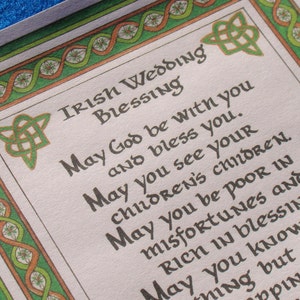 Irish Wedding
Blessing
May God be with you
and bless you.
May you see your
children's children.
May you be poor in
misfortunes and
rich in blessin
May you know
hing but